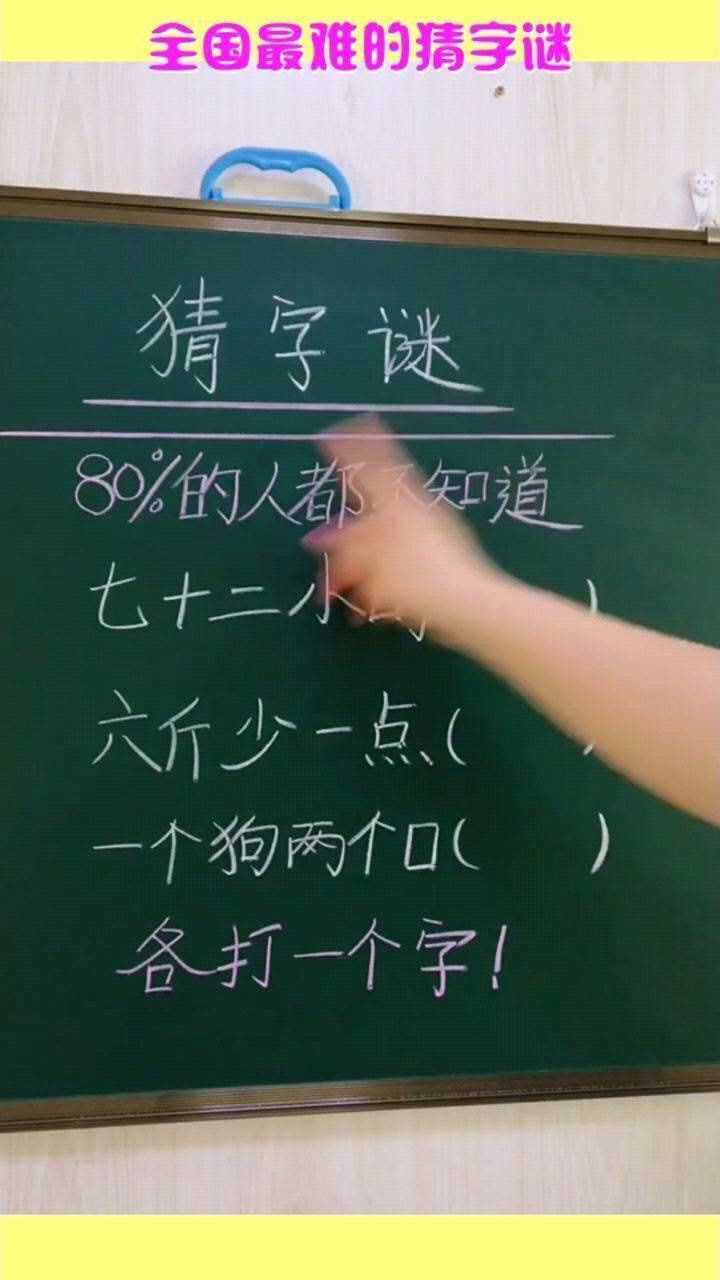 全国最难的猜字谜
猜字谜
80%的人都不知道
七十二小时 )
六斤少一点( )
一个狗两个口( )
各打一个字!